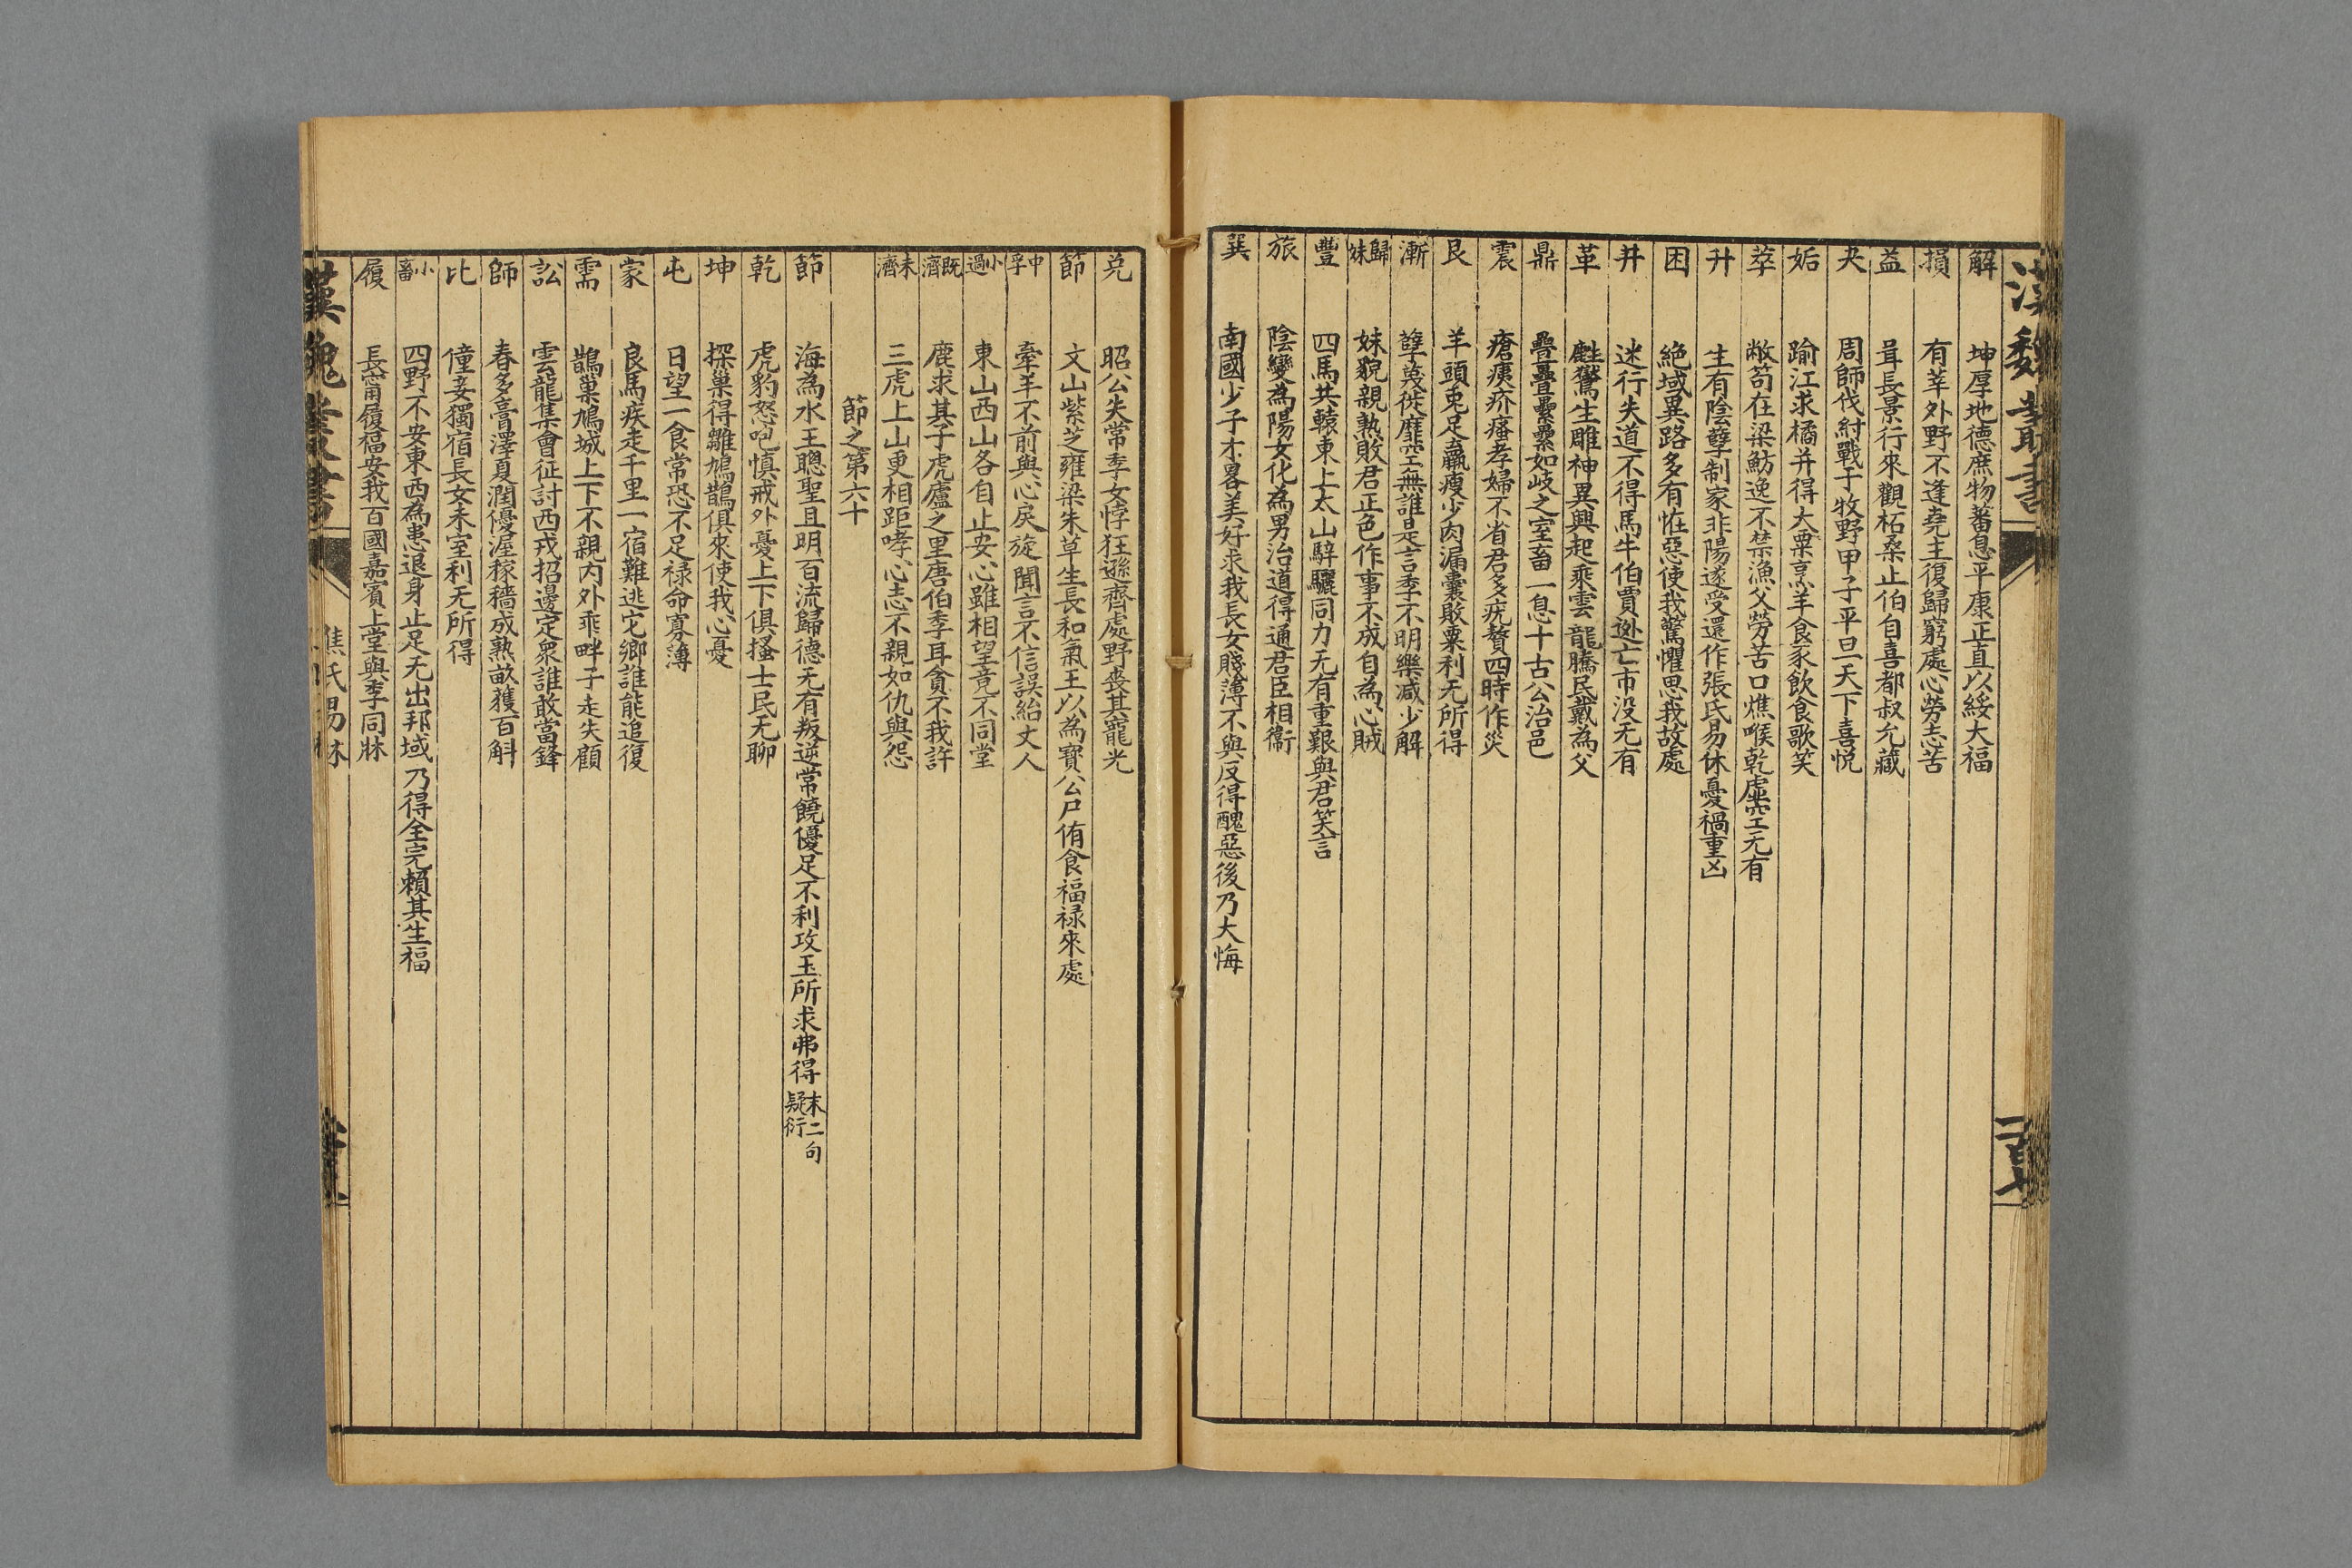 漢魏叢書
解 坤厚地德庶物蕃息平康正直以綏大福
損 有莘外野不逢堯主復歸窮處心勞志苦
益 葺長景行來觀柘桑止伯自喜都叔允藏
夬 周師伐紂戰于牧野甲子平旦天下喜悅
姤 踰江求橘并得大栗烹羊食豕飲食歌笑
萃 敝笱在梁魴逸不禁漁父勞苦口燋喉乾虛空无有
升 生有陰孽制家非陽遂受還作張氏易休憂禍重凶
困 絶域異路多有怪惡使我驚懼思我故處
井 迷行失道不得馬牛伯賈逃亡市没无有
革 生雕神異興起乘雲龍騰民戴為父
鼎 疊疊纍纍如岐之室畜一息十古公治邑
震 瘡痍疥瘙孝婦不省君多疣贅四時作災
艮 羊頭兎足羸瘦少肉漏囊敗粟利无所得
漸 孽徙靡空無誰是言季不明樂减少解
歸妹 妹貌親熟敗君正色作事不成自為心賊
豐 四馬共轅東上太山騂驪同力无有重艱與君笑言
旅 陰變為陽女化為男治道得通君臣相衞
巽 南國少子木畧美好求我長女賤薄不與反得醜惡後乃大悔
兑 昭公失常季女悖狂遜齊處野喪其寵光
節 文山紫芝雍梁朱草生長和氣王以為寶公尸侑食福禄來處
中孚 牽羊不前與心戾旋聞言不信誤紿丈人
小過 東山西山各自止安心雖相望竟不同堂
既濟 鹿求其子虎廬之里唐伯季耳貪不我許
未濟 三虎上山更相距哮心志不親如仇與怨
節之第六十
節 海為水王聰聖且明百流歸德无有叛逆常饒優足不利攻玉所求弗得 末二句疑衍
乾 虎豹怒咆慎戒外憂上下俱搔士民无聊
坤 探巢得雛鳩鵲俱來使我心憂
屯 日望一食常恐不足禄命寡薄
蒙 良馬疾走千里一宿難逃它鄉誰能追復
需 鵲巢鳩城上下不親内外乖畔子走失顧
訟 雲龍集會征討西戎招邊定衆誰敢當鋒
師 春多膏澤夏潤優渥稼穡成熟畝獲百斛
比 僮妾獨宿長女未室利无所得
小畜 四野不安東西為患退身止足无出邦域乃得全完賴其生福
履 長甯履福安我百國嘉賓上堂與季同牀
漢魏叢書 焦氏易林